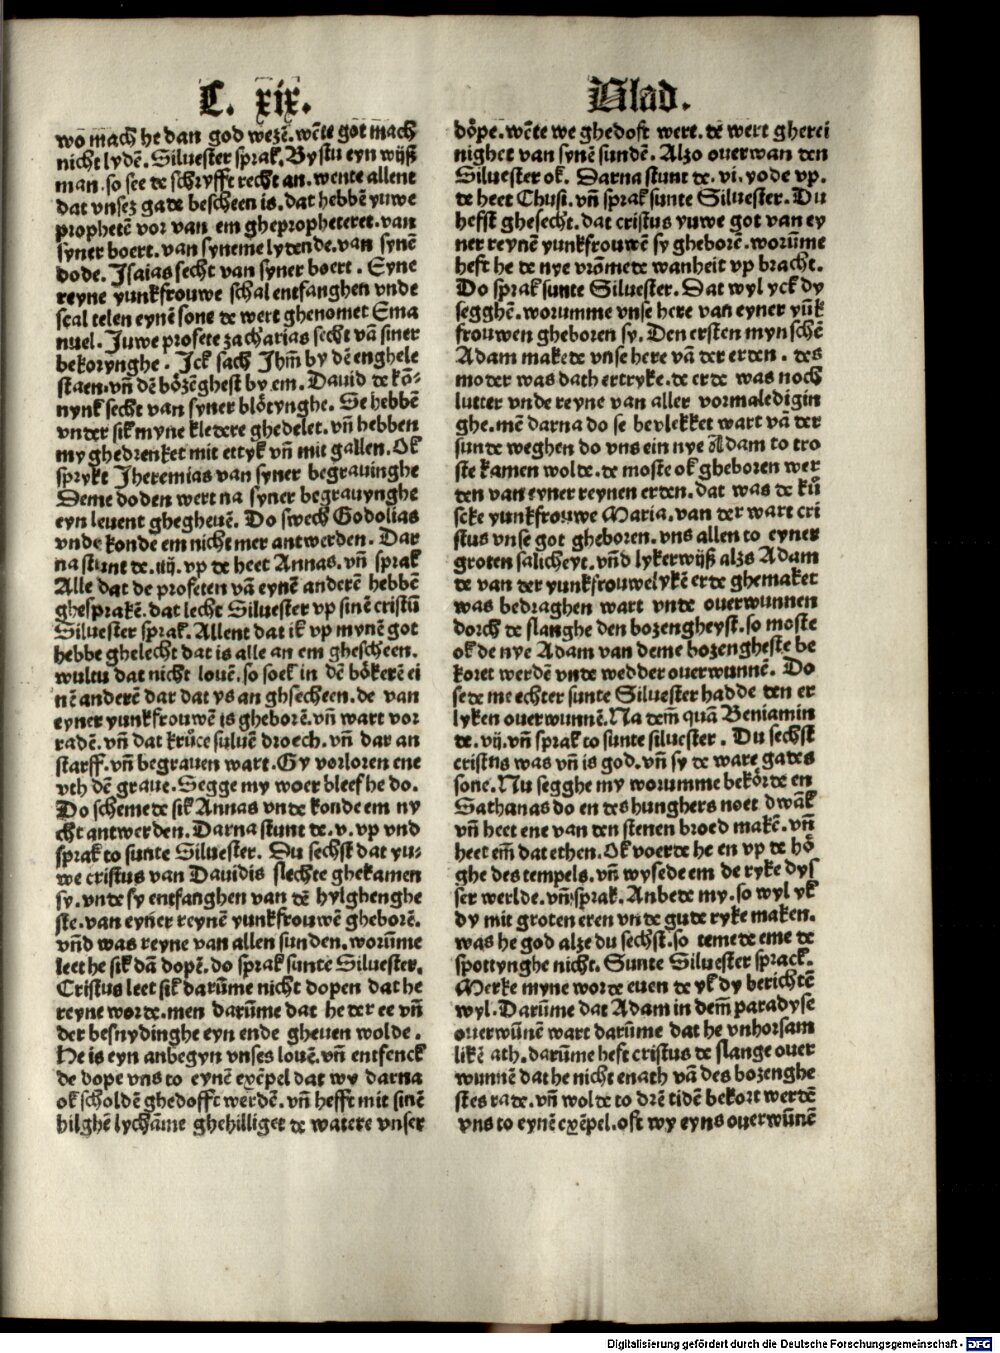 C. xix.
Blad.
wo mach he dan god wezē. wēte got mach
nicht lydē. Siluester sprak. Bystu eyn wijß
man. so see de schryfft recht an. wente allent
dat vnsez gade bescheen is. dat hebbē yuwe
prophetē vor van em ghepropheteret. van
syner boert. van syneme lydende. van synē
dode. Jsaias secht van syner boert. Eyne
reyne yunkfrouwe schal entfanghen vnde
scal telen eynē sone de wert ghenomet Ema
nuel. Juwe profete zacharias secht vā siner
bekorynghe. Jck sach Jhm̄ by dē enghele
staen. vn̄ dē bözēghest by em. Dauid de kō⸗
nynk secht van syner blötynghe. Se hebbē
vnder sik myne kledere ghedelet. vn̄ hebben
my ghedrenket mit ettyk vn̄ mit gallen. Ok
sprykt Jheremias van syner begrauinghe
Deme doden wert na syner begrauynghe
eyn leuent ghegheuē. Do swech Godolias
vnde konde em nicht mer antwerden. Dar
na stunt de. iiij. vp de heet Annas. vn̄ sprak
Alle dat de profeten vā eynē anderē hebbē
ghesprakē. dat lecht Siluester vp sinē cristū
Siluester sprak. Allent dat ik vp mynē got
hebbe ghelecht dat is alle an em ghescheen.
wultu dat nicht louē. so soek in dē bökerē ei
nē anderē dar dat ys an ghsecheen. de van
eyner yunkfrouwē is gheborē. vn̄ wart vor
radē. vn̄ dat krůce suluē droech. vn̄ dar an
starff. vn̄ begrauen wart. Gy vorloren ene
vth dē graue. Segge my woer bleef he do.
Do schemede sik Annas vnde konde em ny
cht antwerden. Darna stunt de. v. vp vnd
sprak to sunte Siluester. Du sechst dat yu⸗
we cristus van Dauidis slechte ghekamen
sy. vnde sy entfanghen van dē hylghenghe
ste. van eyner reynē yunkfrouwē gheborē.
vn̄d was reyne van allen sunden. worūme
leet he sik dā dopē. do sprak sunte Siluester.
Cristus leet sik darūme nicht dopen dat he
reyne worde. men darūme dat he der ee vn̄
der besnydinghe eyn ende gheuen wolde.
He is eyn anbegyn vnses louē. vn̄ entfenck
de dope vns to eynē exēpel dat wy darna
ok scholdē ghedofft werdē. vn̄ hefft mit sinē
hilghē lychāme ghehilliget de watere vnser
döpe. wēte we ghedoft wert. de wert gherei
nighet van synē sundē. Alzo ouerwan den
Siluester ok. Darna stunt de. vi. yode vp.
de heet Chusi. vn̄ sprak sunte Siluester. Du
hefst ghesecht. dat cristus yuwe got van ey
ner reynē yunkfrouwē sy gheborē. worūme
heft he de nye vrōmede wanheit vp bracht.
Do sprak sunte Siluester. Dat wyl yck dy
segghē. worumme vnse here van eyner yūk
frouwen gheboren sy. Den ersten mynschē
Adam makede vnse here vā der erden. des
moder was dath ertryke. de erde was noch
lutter vnde reyne van aller vormaledigin
ghe. mē darna do se bevlekket wart vā der
sunde weghen do vns ein nye Adam to tro
ste kamen wolde. de moste ok gheboren wer
den van eyner reynen erden. dat was de ků
scke yunkfrouwe Maria. van der wart cri
stus vnse got gheboren. vns allen to eyner
groten salicheyt. vn̄d lykerwijß alzs Adam
de van der yunkfrouwelykē erde ghemaket
was bedraghen wart vnde ouerwunnen
dorch de slanghe den bozengheyst. so moste
ok de nye Adam van deme bozengheste be
koret werdē vnde wedder ouerwunnē. Do
sede me echter sunte Siluester hadde den er
lyken ouerwunnē. Na dem̄ quā Beniamin
de. vij. vn̄ sprak to sunte siluester. Du sechst
cristus was vn̄ is god. vn̄ sy de ware gades
sone. Nu segghe my worumme bekörde en
Sathanas do en des hunghers noet dwāk
vn̄ heet ene van den stenen broed makē. vn̄
heet em̄ dat ethen. Ok voerde he en vp de hö
ghe des tempels. vn̄ wysede em de ryke dys
ser werlde. vn̄ sprak. Anbede my. so wyl yk
dy mit groten eren vnde gude ryke maken.
was he god alze du sechst. so temede eme de
spottynghe nicht. Sunte Siluester sprack.
Merke myne worde euen de yk dy berichtē
wyl. Darūme dat Adam in dem̄ paradyse
ouerwūnē wart darūme dat he vnhorsam
likē ath. darūme heft cristus de slange ouer
wunnē dat he nicht enath vā des bozenghe
stes rade. vn̄ wolde to drē tidē bekort werdē
vns to eynē exēpel. oft wy eyns ouerwūnē
Digitalisierung gefördert durch die Deutsche Forschungsgemeinschaft - DFG